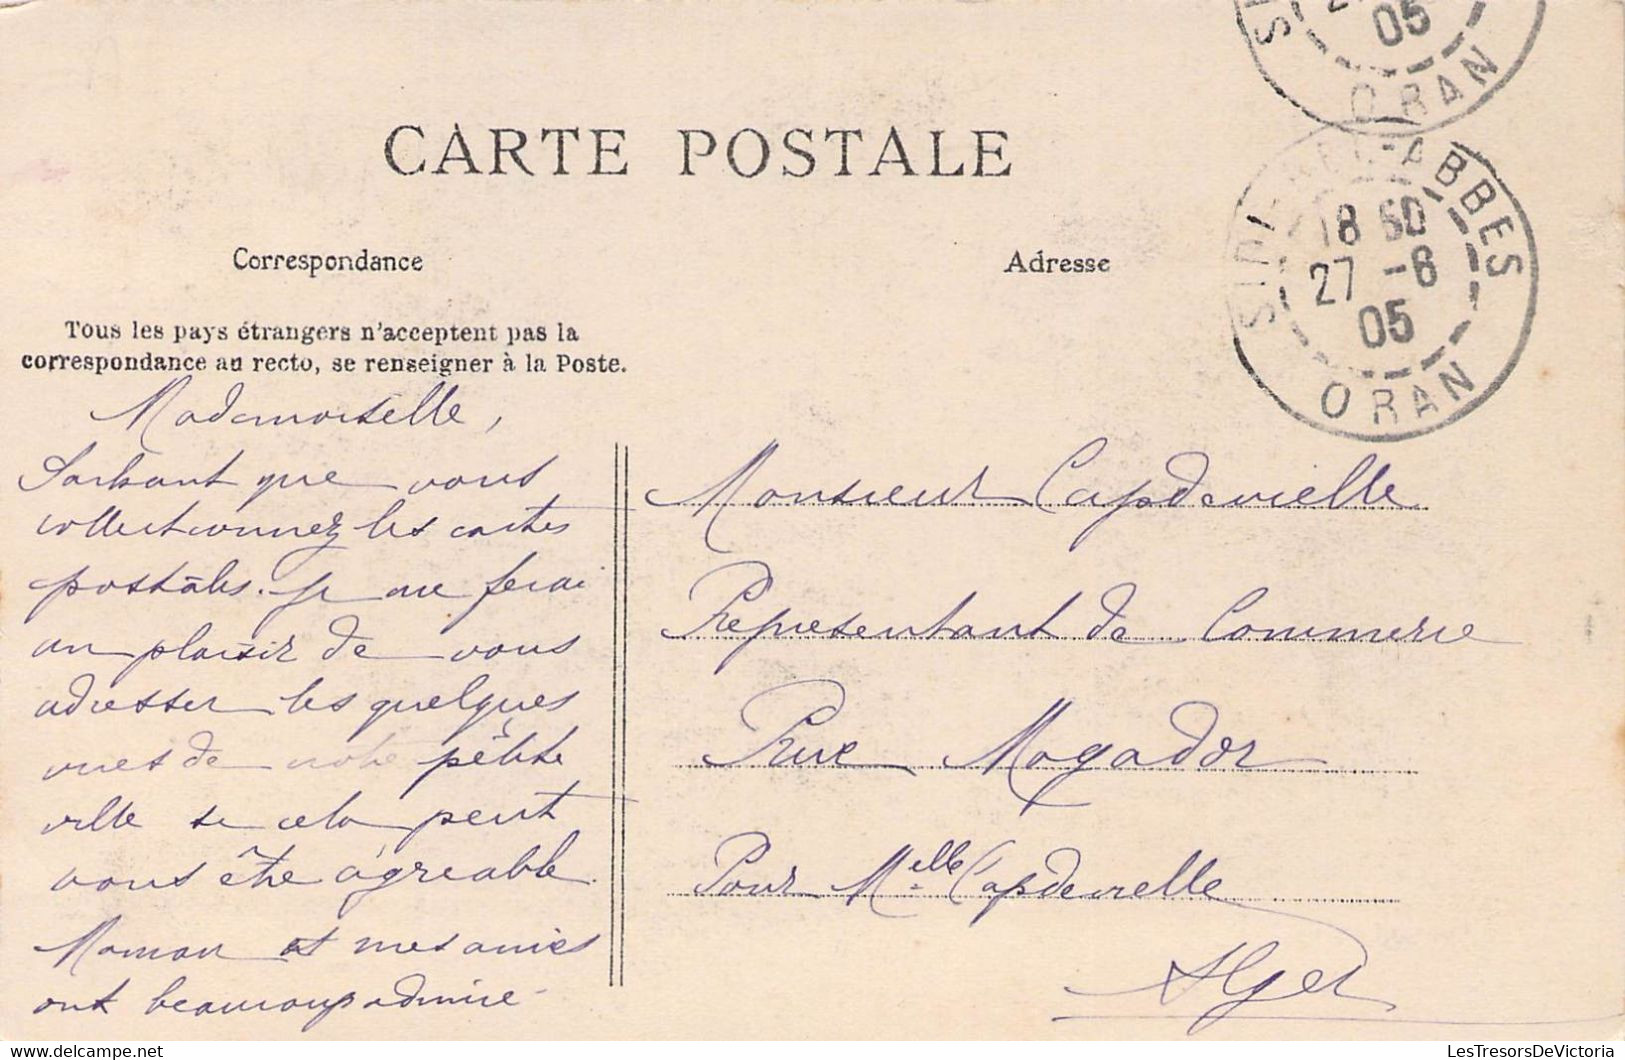 05
ORAN
CARTE POSTALE
SIDI-BEL-ABBES
18 50
27 -8
05
ORAN
Correspondance
Adresse
Tous les pays étrangers n'acceptent pas la
correspondance au recto, se renseigner à la Poste.
Mademoiselle,
Sachant que vous
collectionnez les cartes
postales. je me ferai
un plaisir de vous
adresser les quelques
vues de notre pétite
ville si cela peut
vous être agréable.
Maman et mes amies
ont beaucoup admiré
Monsieur Capdevielle
Représentant de Commerce
Rue Mogador
Pour Melle Capdevielle
Alger
www.LesTresorsDeVictoria.com